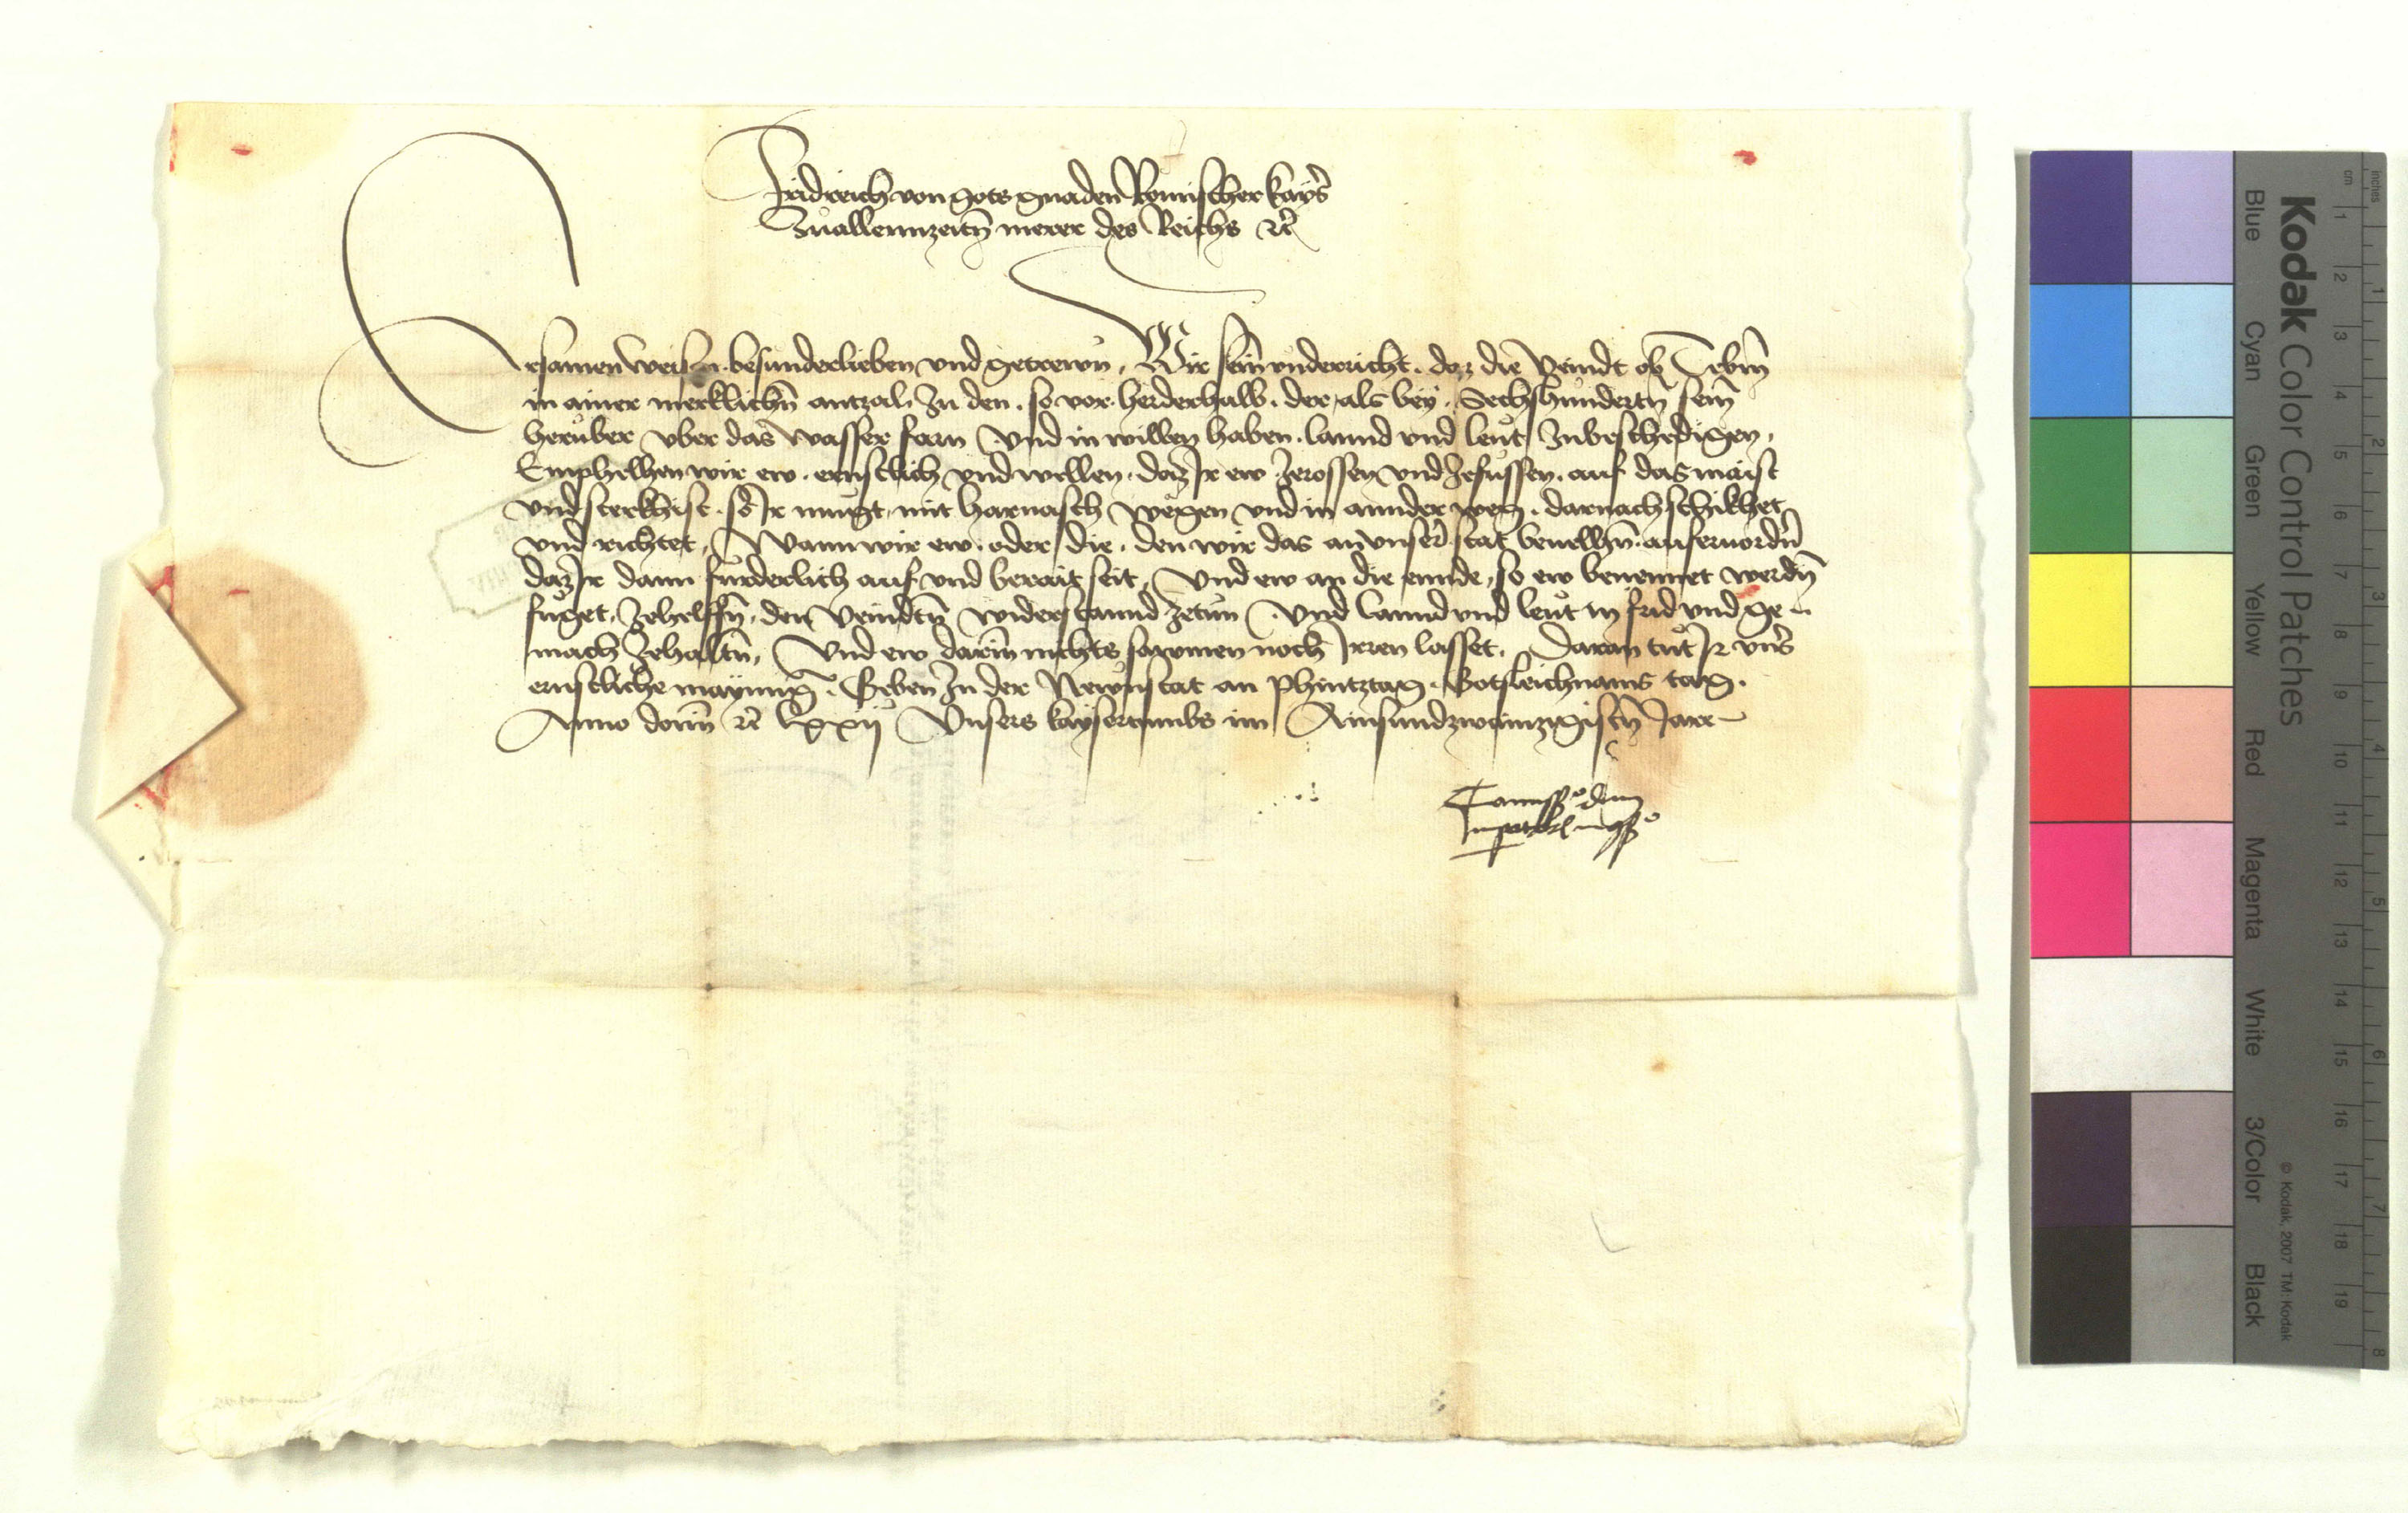 Fridreich von gots gnaden Romischer kayser
Zuallennzeitn merer des Reichs etc
Ersamen weisen besunderlieben und getrewn, Wir sein underricht, daz die Veindt ob Tebm
in ainer merklichn antzal, zu den, so vor herderhalb, der als bey Sechshundertn sein
heruber uber das wasser farn Und in willen haben, lannd und leut zubeschedigen,
Emphelhen wir ew ernstlich und wellen, daz Ir ew ze rossen und ze fussen, auf das maist
und sterkhist, so Ir mugt, mit harnasch wegen und in annder weg, darnach schikhet
und richtet, Wann wir ew oder die, den wir das an unser stat bevelhn, aufervordn
daz Ir dann furderlich auf und berait seit, Und ew an die ennde, so ew benennet werdn
fuget, ze helffn, den Veindtn widerstannd zetun, Und lannd und leut in frid und ge-
mach zehaltn, Und ew darin nichts sawmen noch Irren lasset, Daran tut Ir unser
ernstliche maynung. Geben zu der Newnstat an phintztag Gotsleichnams tag.
Anno domini etc lxxij Unsers kaysertumbs im Ainsundzwainzigistn Jare
Commissio domini
Imperatoris in consilio
Kodak Color Control Patches
Blue Cyan Green Yellow Red Magenta White 3/Color Black
© Kodak, 2007 TM: Kodak
cm 1 2 3 4 5 6 7 8 9 10 11 12 13 14 15 16 17 18 19
inches 1 2 3 4 5 6 7 8